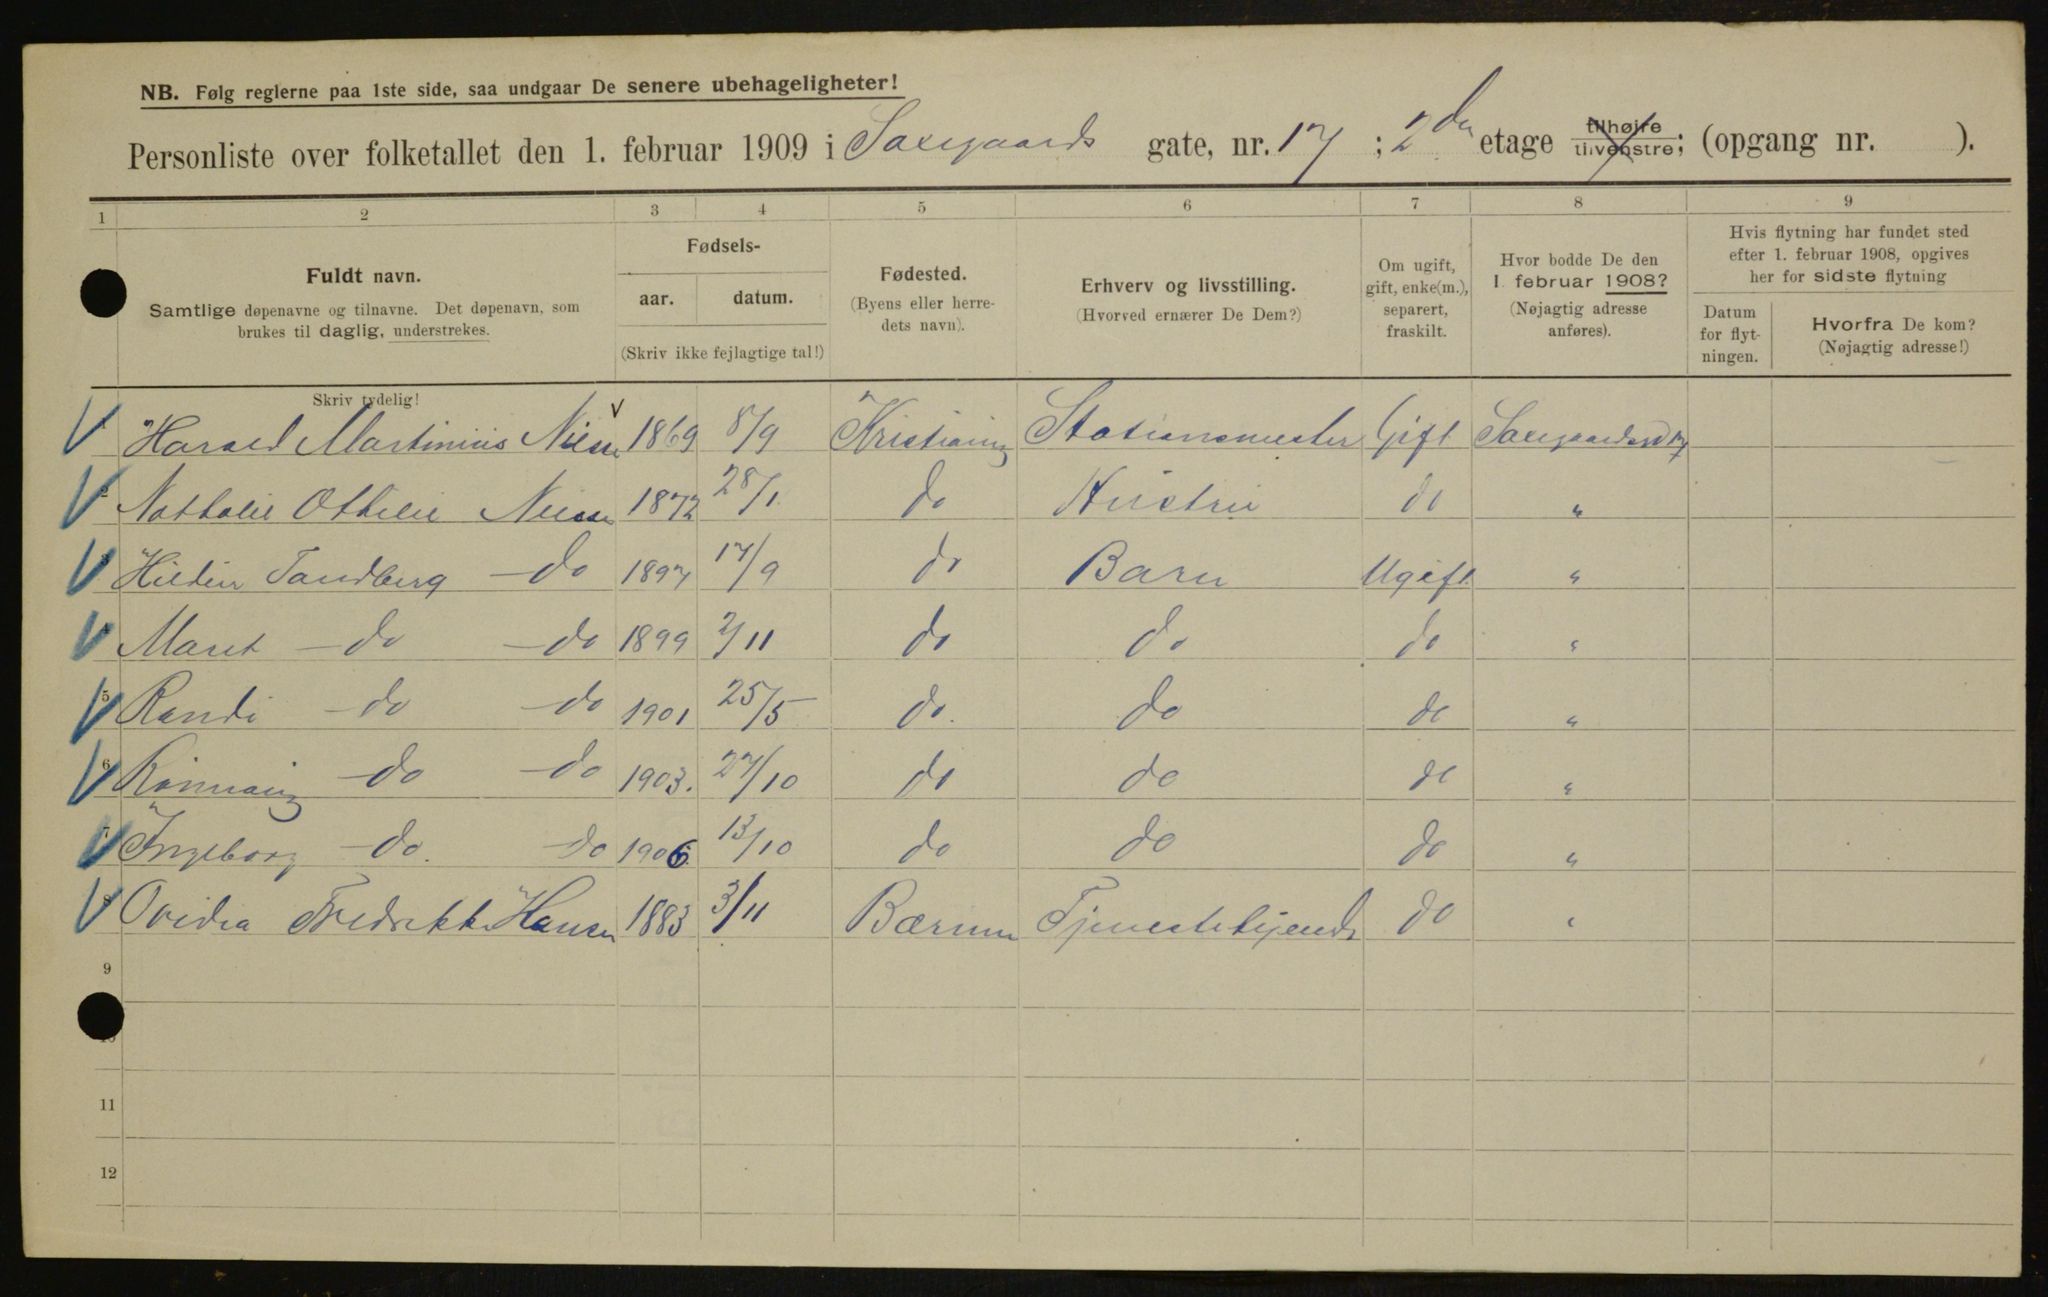 NB. Følg reglerne paa 1ste side, saa undgaar De senere ubehageligheter!
Personliste over folketallet den 1. februar 1909 i Saxegaards gate, nr. 17 ; 2den etage tilhøire tilvenstre; (opgang nr. ).
1 2 3 4 5 6 7 8 9
Fuldt navn.
Samtlige døpenavne og tilnavne. Det døpenavn, som
brukes til daglig, understrekes.
Skriv tydelig!
Fødsels-
aar. datum.
(Skriv ikke fejlagtige tal!)
Fødested.
(Byens eller herre-
dets navn).
Erhverv og livsstilling.
(Hvorved ernærer De Dem?)
Om ugift,
gift, enke(m.),
separert,
fraskilt.
Hvor bodde De den
1 februar 1908?
(Nøjagtig adresse
anføres).
Hvis flytning har fundet sted
efter 1. februar 1908, opgives
her for sidste flytning
Datum
for flyt-
ningen.
Hvorfra De kom?
(Nøjagtig adresse!)
Harald Martinius 1869 8/9 Kristiania Stationsmester Gift 17
2 Nathalie Othilie 1872 28/1 do Hustru do "
3 Tandberg do 1897 17/9 do Barn Ugift "
Marit do do 1899 2/11 do do do "
5 Randi do do 1901 25/5 do. do do "
6 do do 1903. 27/10 do do do "
7 Ingeborg do. do 1906 13/10 do do do "
8 Ovidia Fredrikke Hansen 1883 3/11 Bærum do "
9
10
11
12